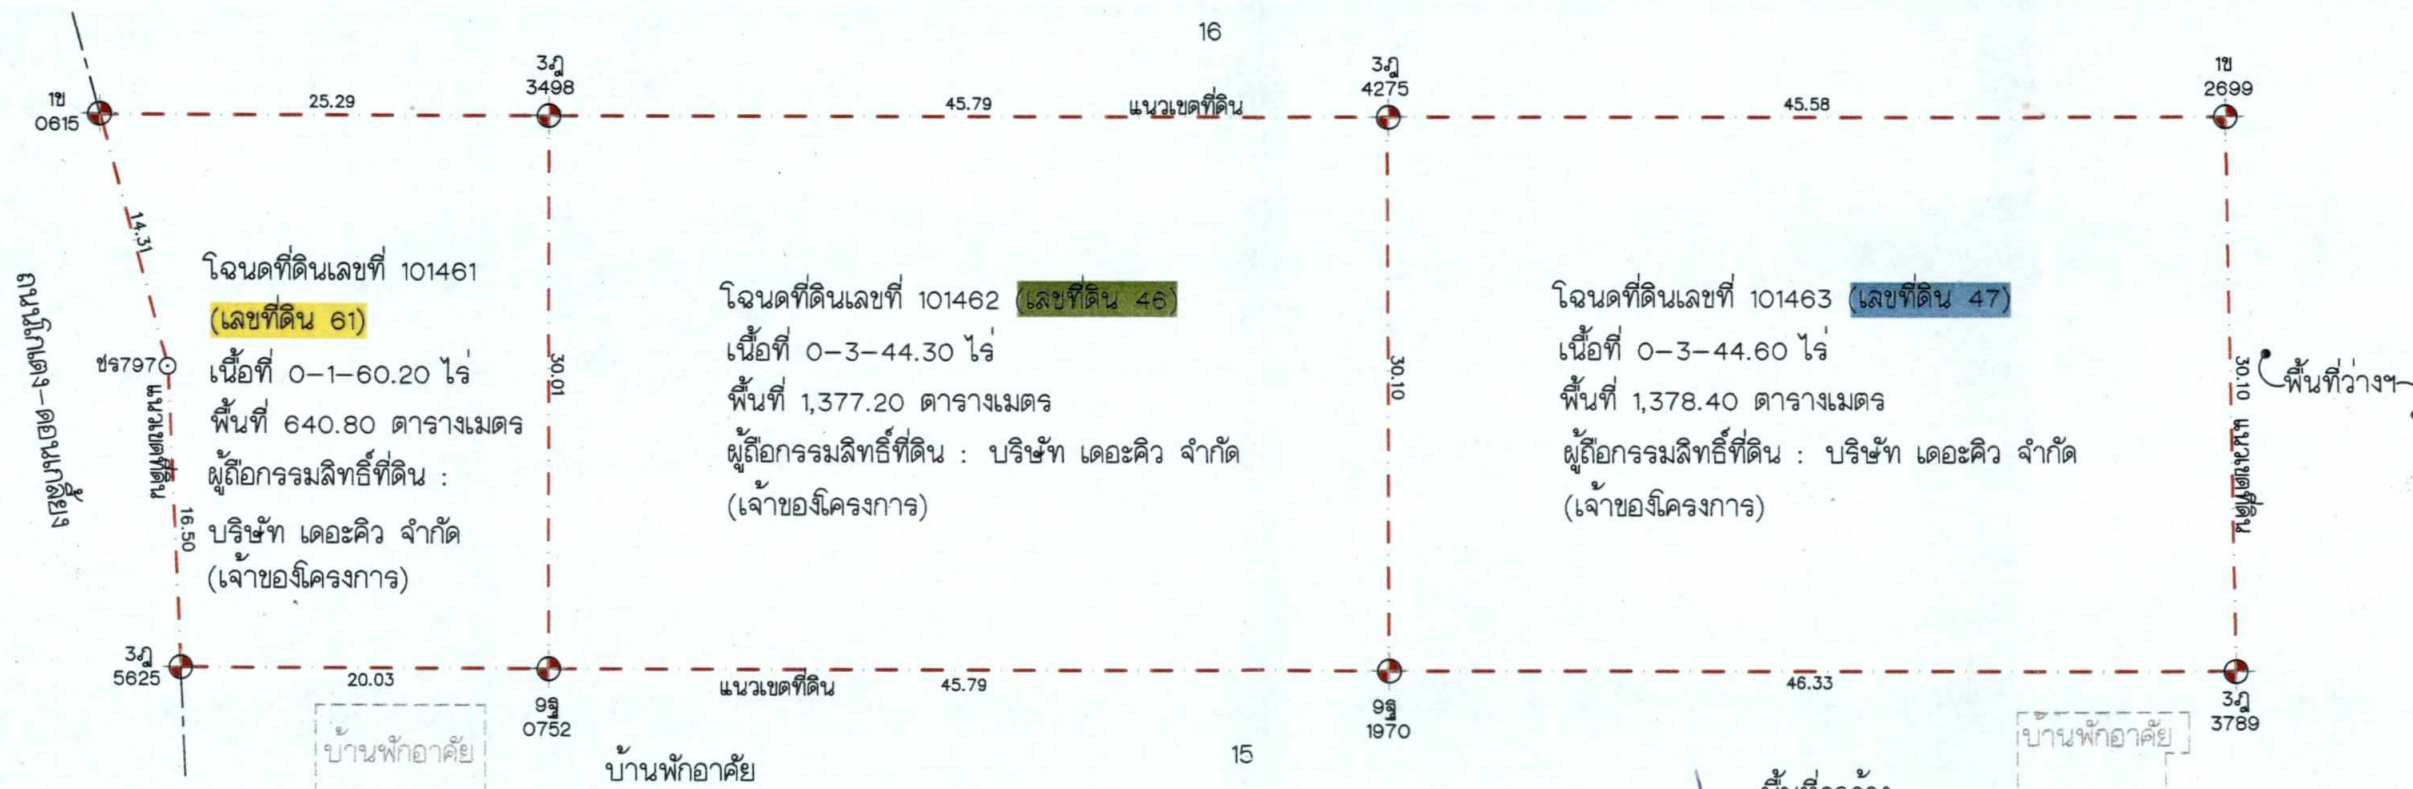 16
1ข
0615
25.29
3ฎ
3498
45.79
แนวเขตที่ดิน
3ฎ
4275
45.58
1ข
2699
14.31
ถนนโกเตง-ดอนเกลี้ยง
ชร797
แนวเขตที่ดิน
16.50
โฉนดที่ดินเลขที่ 101461
(เลขที่ดิน 61)
เนื้อที่ 0-1-60.20 ไร่
พื้นที่ 640.80 ตารางเมตร
ผู้ถือกรรมลิทธิ์ที่ดิน :
บริษัท เดอะคิว จำกัด
(เจ้าของโครงการ)
30.01
โฉนดที่ดินเลขที่ 101462 (เลขที่ดิน 46)
เนื้อที่ 0-3-44.30 ไร่
พื้นที่ 1,377.20 ตารางเมตร
ผู้ถือกรรมลิทธิ์ที่ดิน : บริษัท เดอะคิว จำกัด
(เจ้าของโครงการ)
30.10
โฉนดที่ดินเลขที่ 101463 (เลขที่ดิน 47)
เนื้อที่ 0-3-44.60 ไร่
พื้นที่ 1,378.40 ตารางเมตร
ผู้ถือกรรมลิทธิ์ที่ดิน : บริษัท เดอะคิว จำกัด
(เจ้าของโครงการ)
30.10 แนวเขตที่ดิน
พื้นที่ว่างฯ
3ฎ
5625
20.03
9ฐ
0752
แนวเขตที่ดิน
45.79
9ฐ
1970
46.33
3ฎ
3789
บ้านพักอาศัย
บ้านพักอาศัย
15
บ้านพักอาศัย